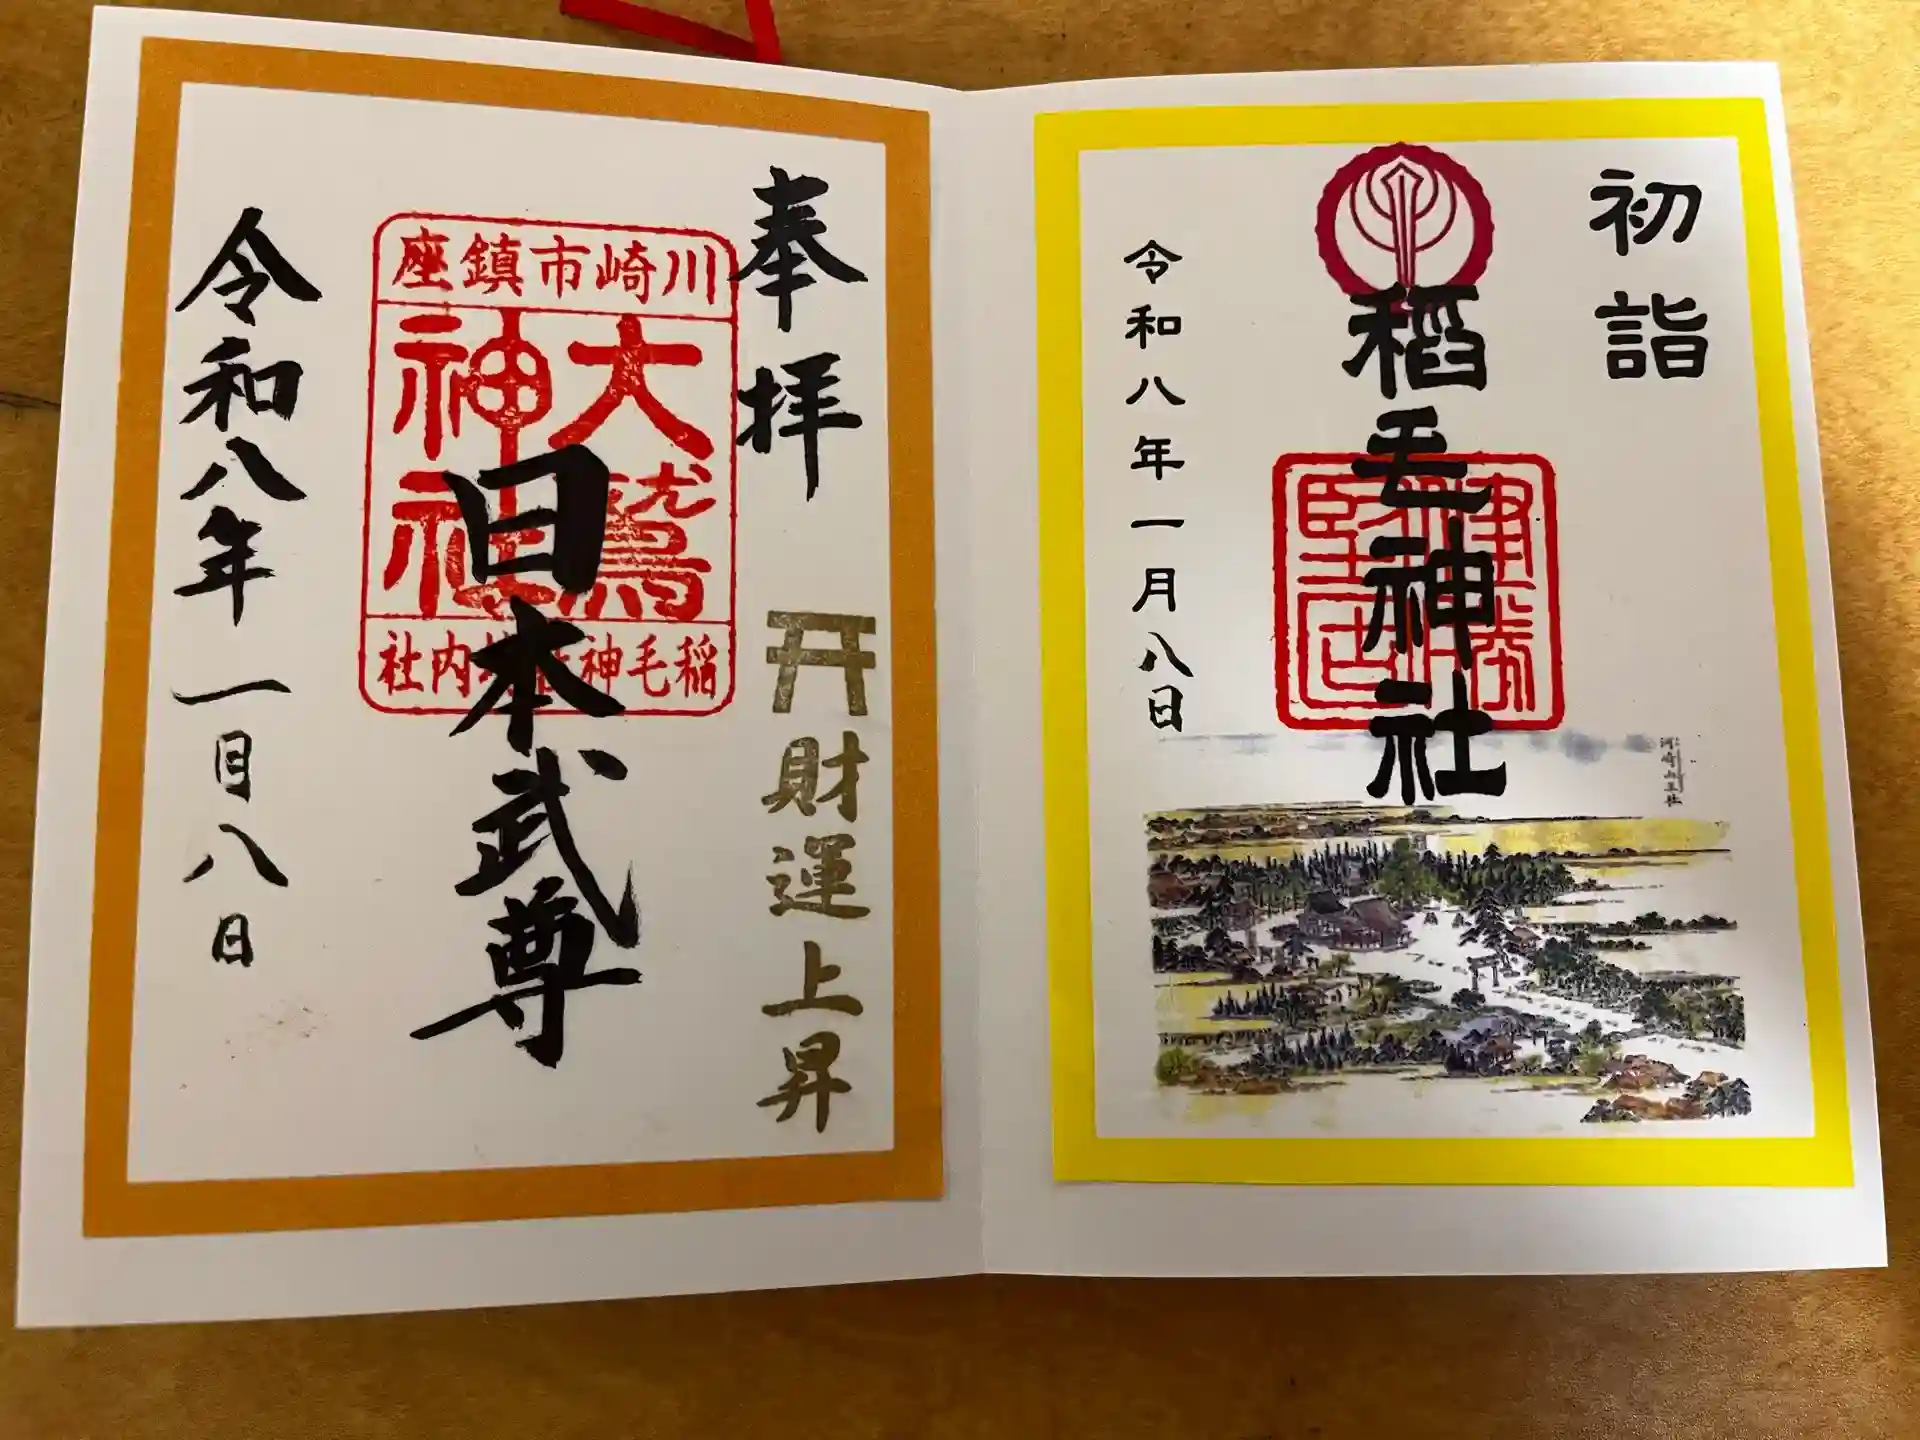 初詣
稲毛神社
令和八年一月八日
河崎山王社
奉拝
財運上昇
川崎市鎮座
大鷲
神社
稲毛神社境内社
日本武尊
令和八年一月八日